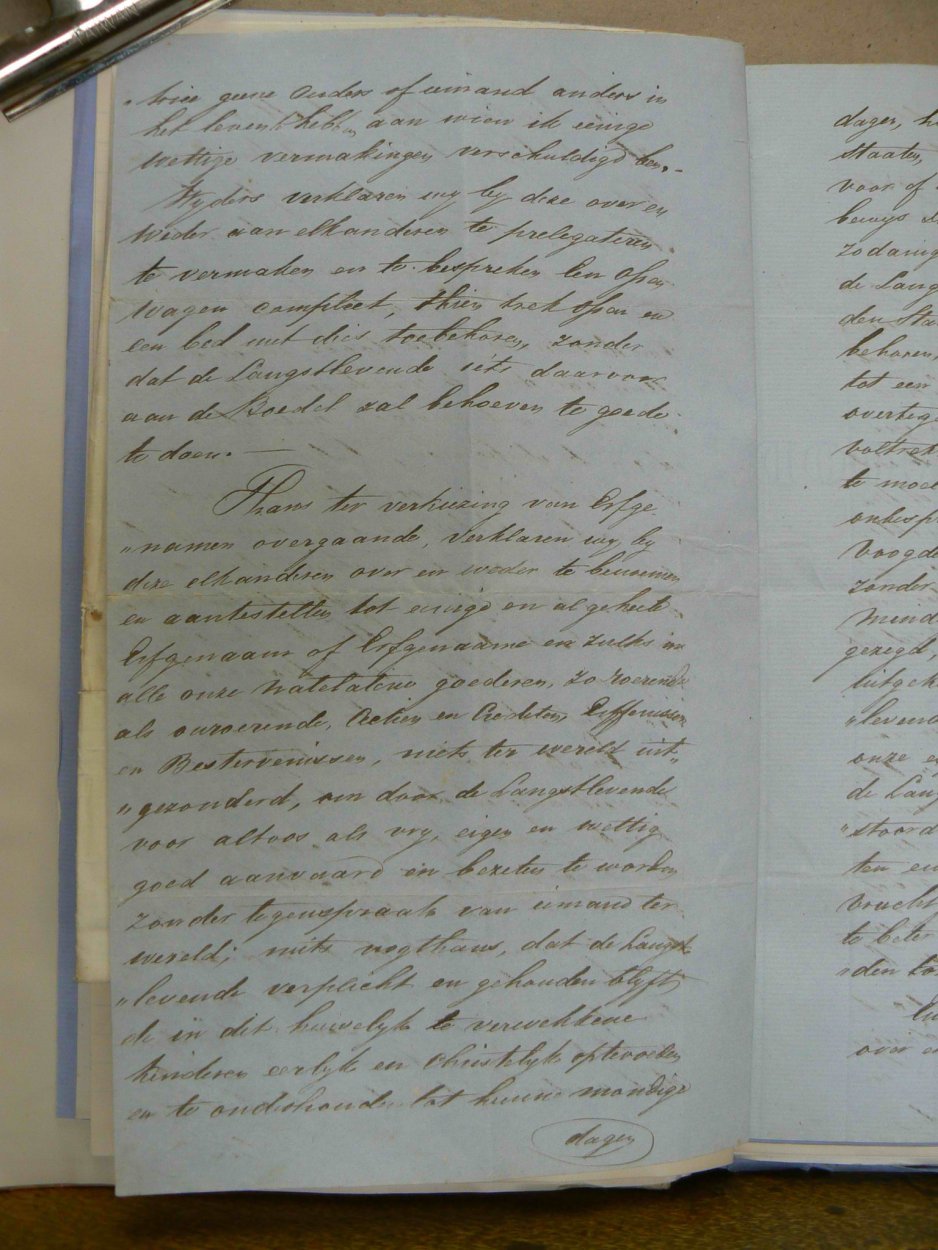 "wiee geene ouders of iemand anders in
het leven heb, aan wien ik eenige
wettige vermakingen verschuldigd ben.-
Wyders verklaren wy by deze over en
weder aan elkanderen te prelegateren
te vermaken en te bespreken Een Ossen
wagen compleet, thien trek ossen en
een bed met dies toebehoren, zonder
dat de Langstlevende iets daarvoor
aan de Boedel zal behoeven te goede
te doen. —
Thans ter verkiezing van Erfge
"namen overgaande, verklaren wy by
deze elkanderen over en weder te benoemen
en aantestellen tot eenige en algeheele
Erfgenaam of Erfgename en zulks in
alle onze natelatene goederen, zo roerende
als onroerende, Actien en Crediten, Erffenissen
en Bestervenissen, niets ter wereld uit„
„gezonderd, om door de Langstlevende
voor altoos als vry, eigen en wettig
goed aanvaard en bezeten te worden
zonder tegenspraak van iemand ter
wereld; mits nogthans, dat de Langst
„levende verplicht en gehouden blyft
de in dit huwelyk te verwekkene
kinderen eerlyk en christelyk optevoeden
en te onderhouden tot hunne mondige
dagen
dagen,
staaten,
voor of
bewys
zodanig
de Lang
den
behoren,
tot een
overtege
voltrek
te moe
onbesp
Voogde
zonder
Mend
gezegd,
uitgek
„levend
onze e
de Lang
"stoord
ten en
vrucht
te beter
"den
over e